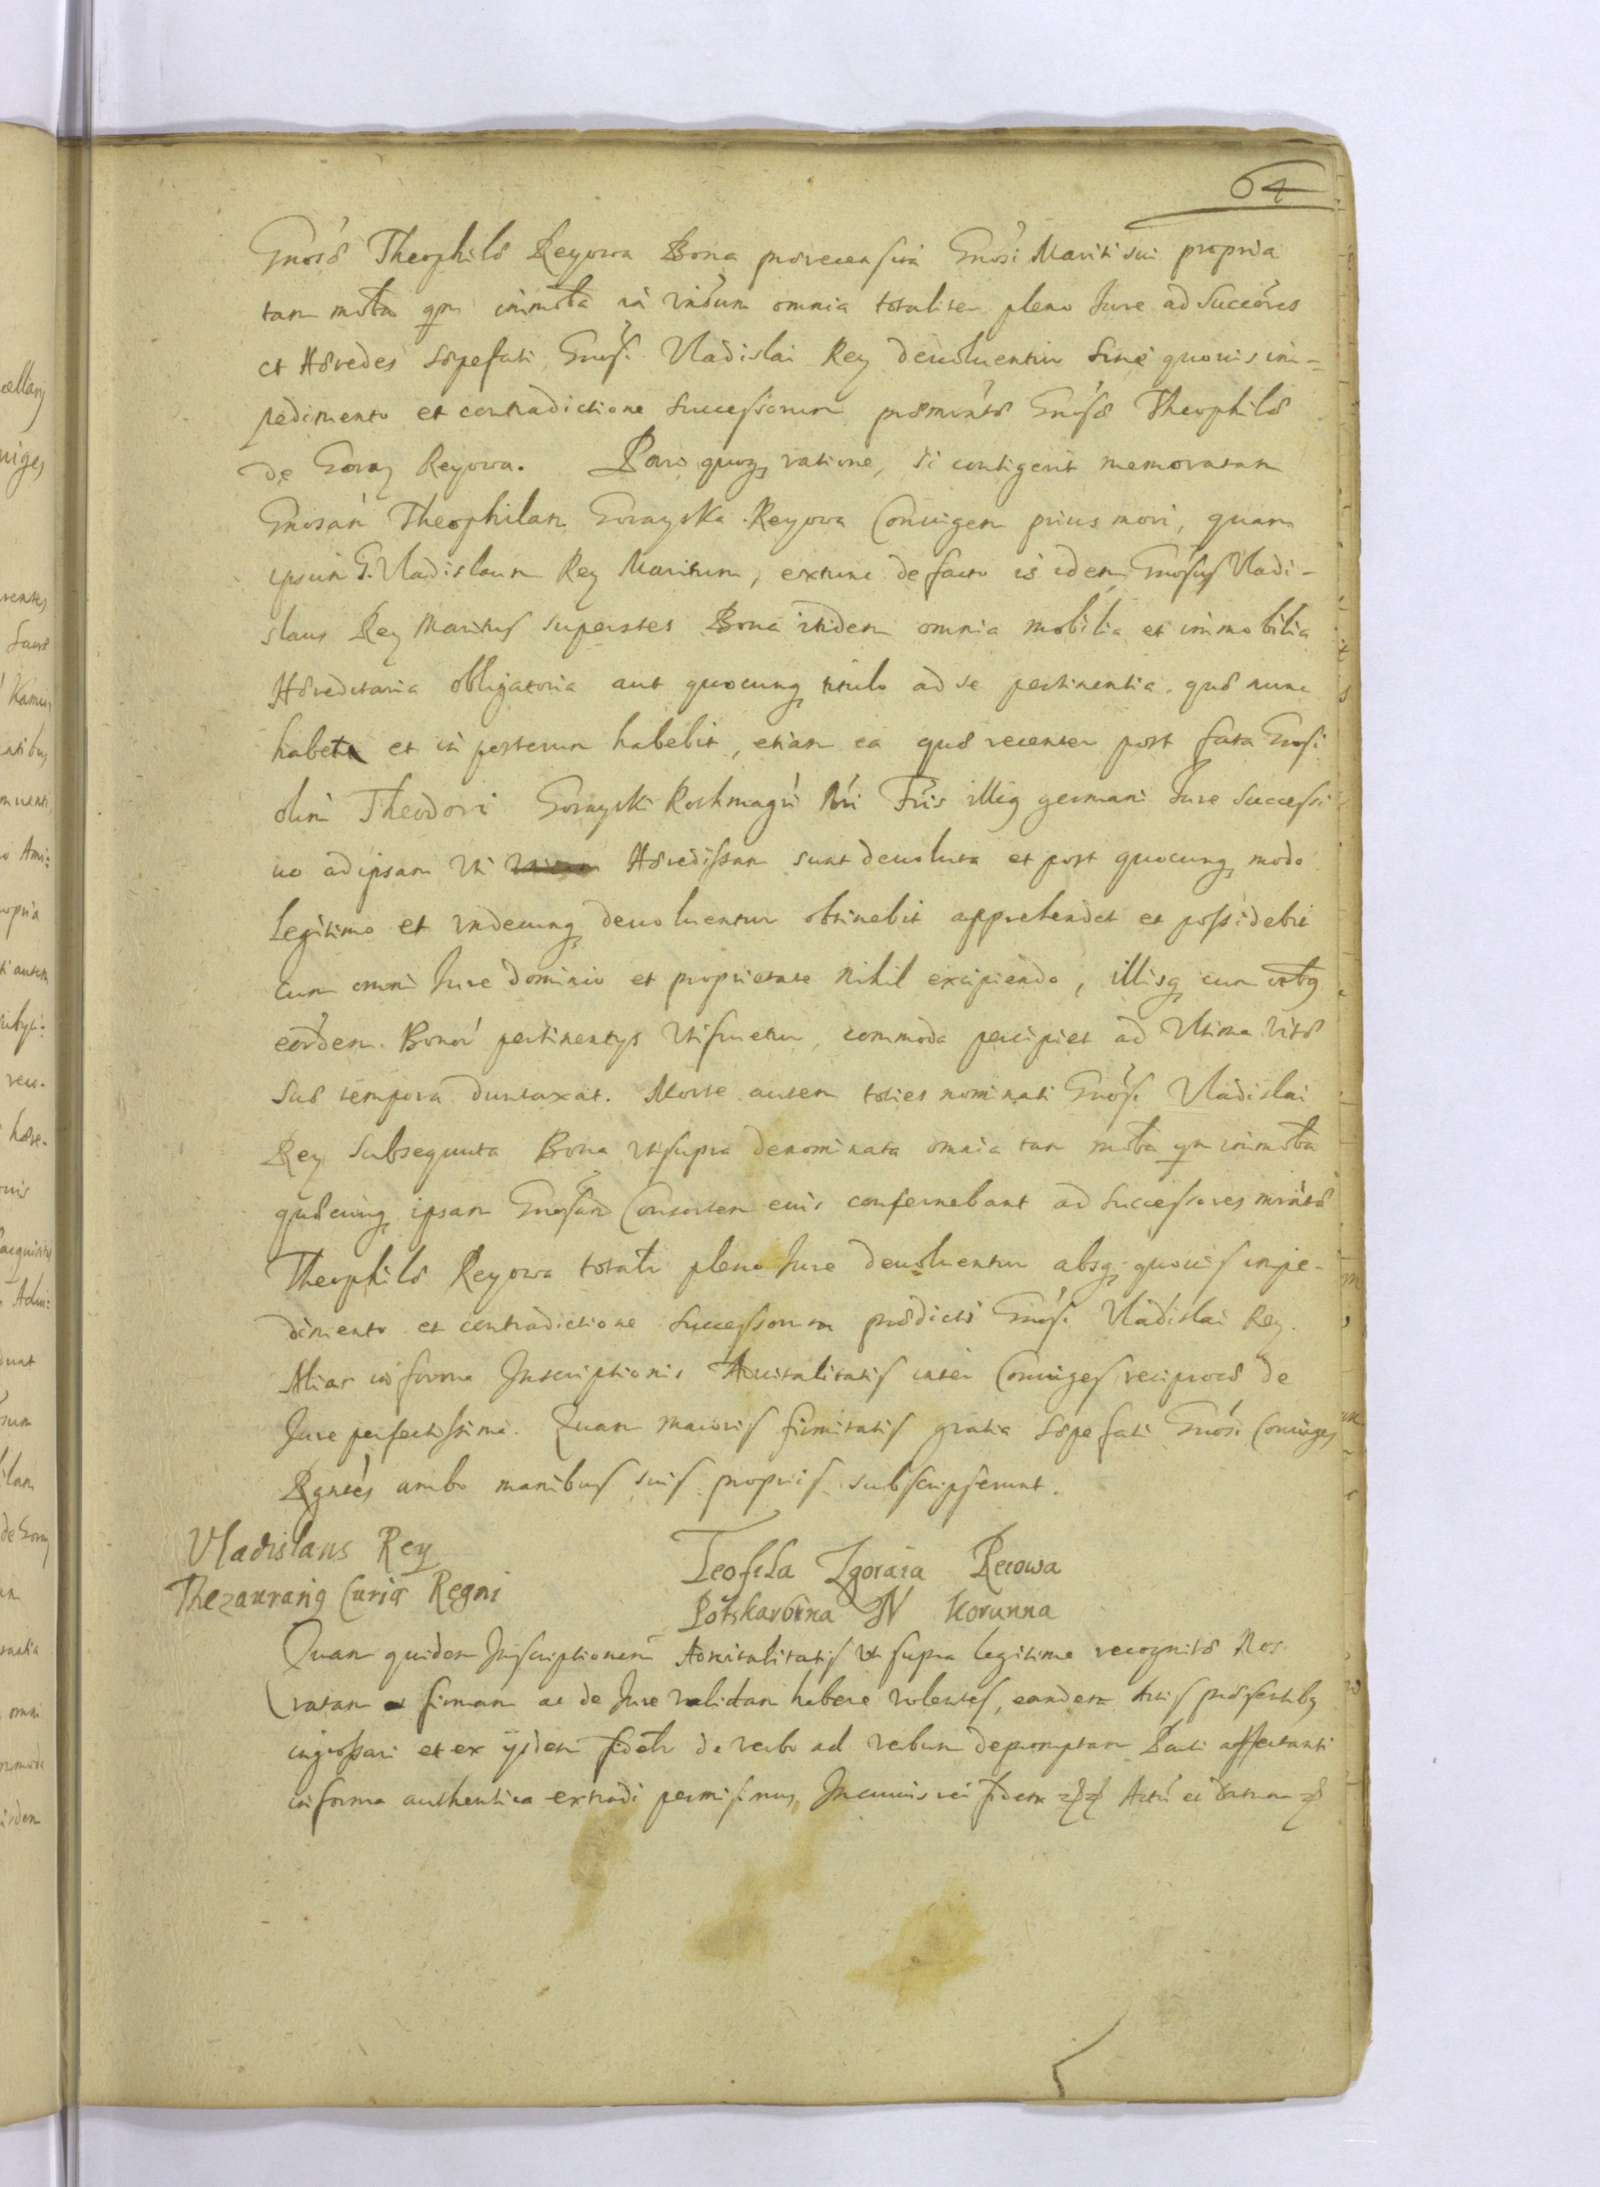 64
Gnosæ Theophilæ Reyowa Bona prærecensita Gnosi Mariti sui propria
tam mobilia qm immobilia in unum omnia totaliter pleno Jure ad Succores
et Hæredes sæpefati Gnosi Vladislai Rey devoluentur sine quouis im-
pedimento et contradictione successorum præmntæ Gnosæ Theophilæ
de Goray Reyowa. Pari quoq ratione, si contigerit memoratam
Gnosam Theophilam Gorayska Reyowa Coniugem prius mori, quam
ipsum G. Vladislaum Rey Maritum, extunc de facto is idem Gnosus Vladi-
slaus Rey Maritus superstes Bona itidem omnia mobilia et immobilia
Hæreditaria obligatoria aut quocunq titulo ad se pertinentia quæ nunc
habet et in posterum habebit, etiam ea quæ recenter post fata Gnosi
olim Theodori Gorayski Rothmagri Fris illig germani Jure Successi
uo ad ipsam uti Hæredissam sunt deuoluta et post quocunq modo
legitimo et undecunq deuoluentur obtinebit apprehendet et possidebit
cum omni Jure dominio et proprietate nihil excipiendo, illisq cum
eordem Bonor pertinentys utifruetur, commoda percipiet ad Vltima Vitæ
suæ tempora duntaxat. Morte autem toties nominati Gnosi Vladislai
Rey subsequuta Bona utsupra denominata omnia tam mobilia qm immobilia
quæcunq ipsam Gnosam Consortem eius concernebant ad successores mrntæ
Theophilæ Reyowa totalr pleno Jure deuoluentur absq quouis impe-
dimento et contradictione successorum prædicti Gnosi Vladislai Rey.
Alias in forma Inscriptionis Aduitalitatis inter Coniuges reciprocæ de
Jure perfectissima. Quam maioris firmitatis gratia sæpefati Gnosi Coniuges
Rgntes ambo manibus suis propriis subscripserunt.
Vladislaus Rey
Thezaurarig Curiæ Regni
Teofila Zgoraia Reiowa
Potskarbina N Korunna
Quam quidem Inscriptionem Aduitalitatis ut supra legitime recognitæ Nos
ratam et firmam ac de Jure validam habere volentes, eandem Actis præsentibg
ingrossari et ex ijsdem fidelr de verbo ad verbum depromptam Parti affectanti
in forma authentica extradi permisimus, In cuius rei fidem Actũ et datum